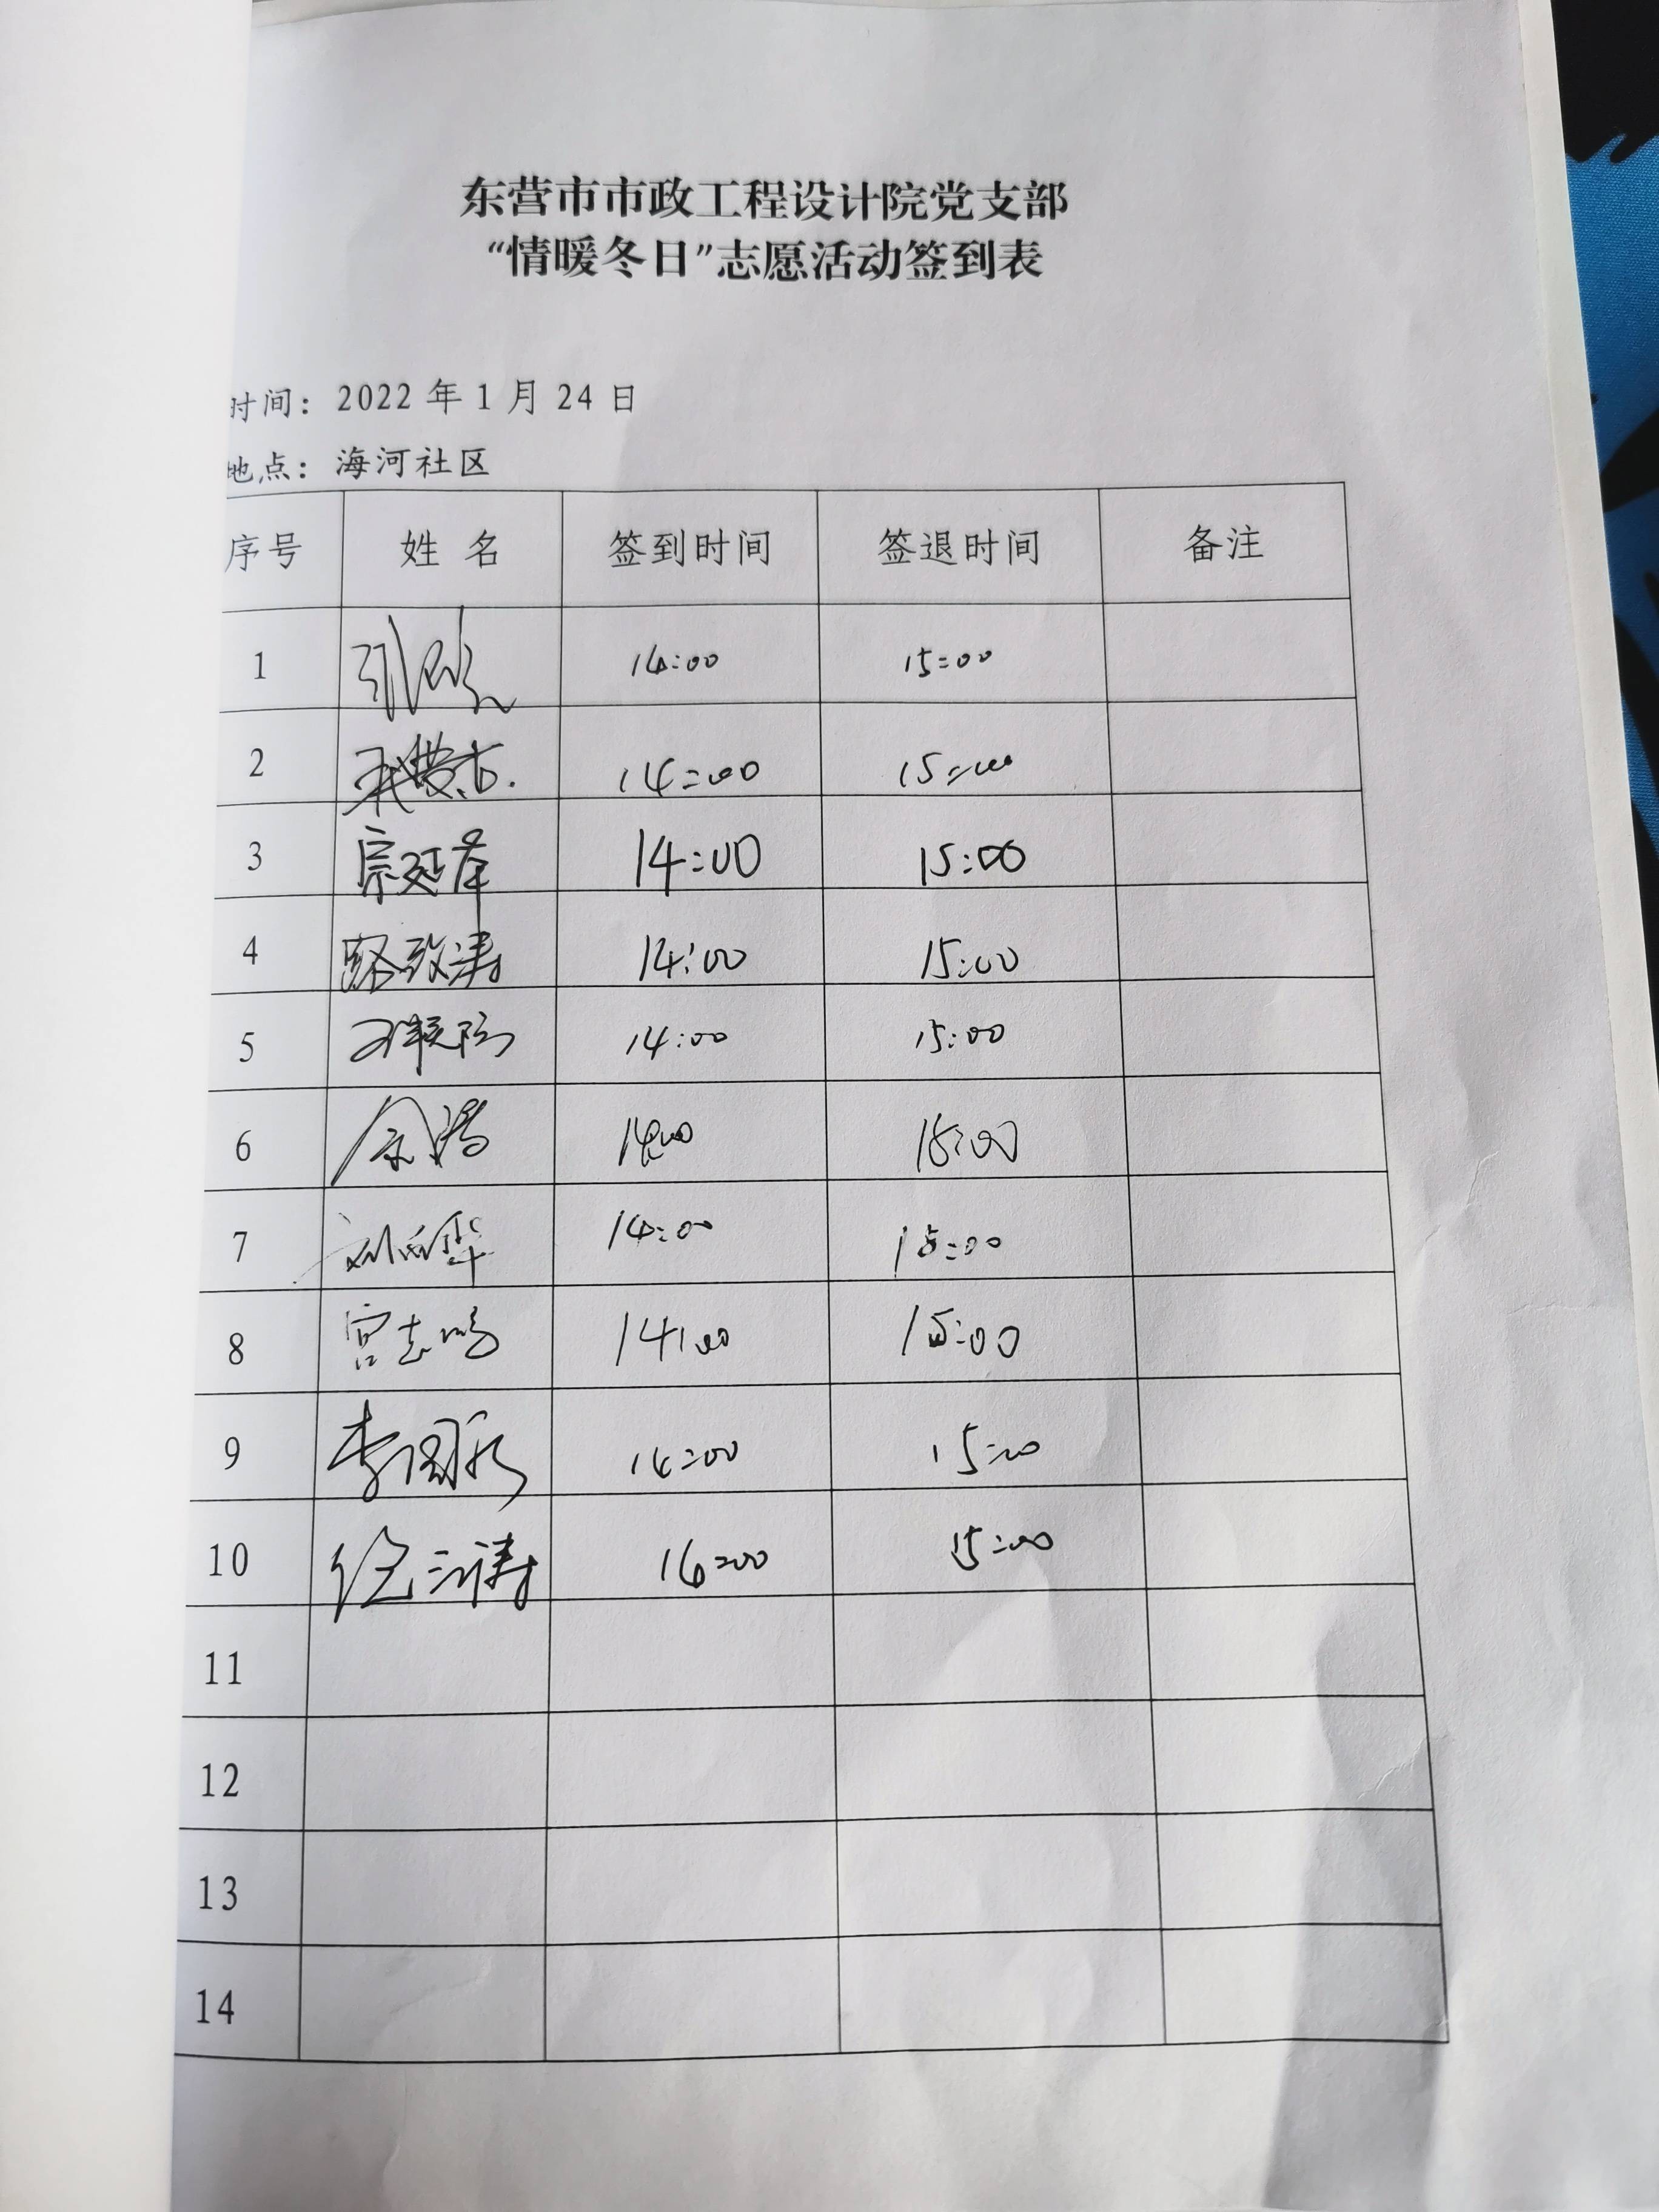 东营市市政工程设计院党支部
“情暖冬日”志愿活动签到表
时间：2022 年 1 月 24 日
地点：海河社区
序号 姓 名 签到时间 签退时间 备注
1 14:00 15:00
2 14:00 15:00
3 宗延泽 14:00 15:00
4 路致涛 14:00 15:00
5 14:00 15:00
6 14:00 15:00
7 14:00 15:00
8 宫志鸣 14:00 15:00
9 李国彩 14:00 15:00
10 14:00 15:00
11
12
13
14